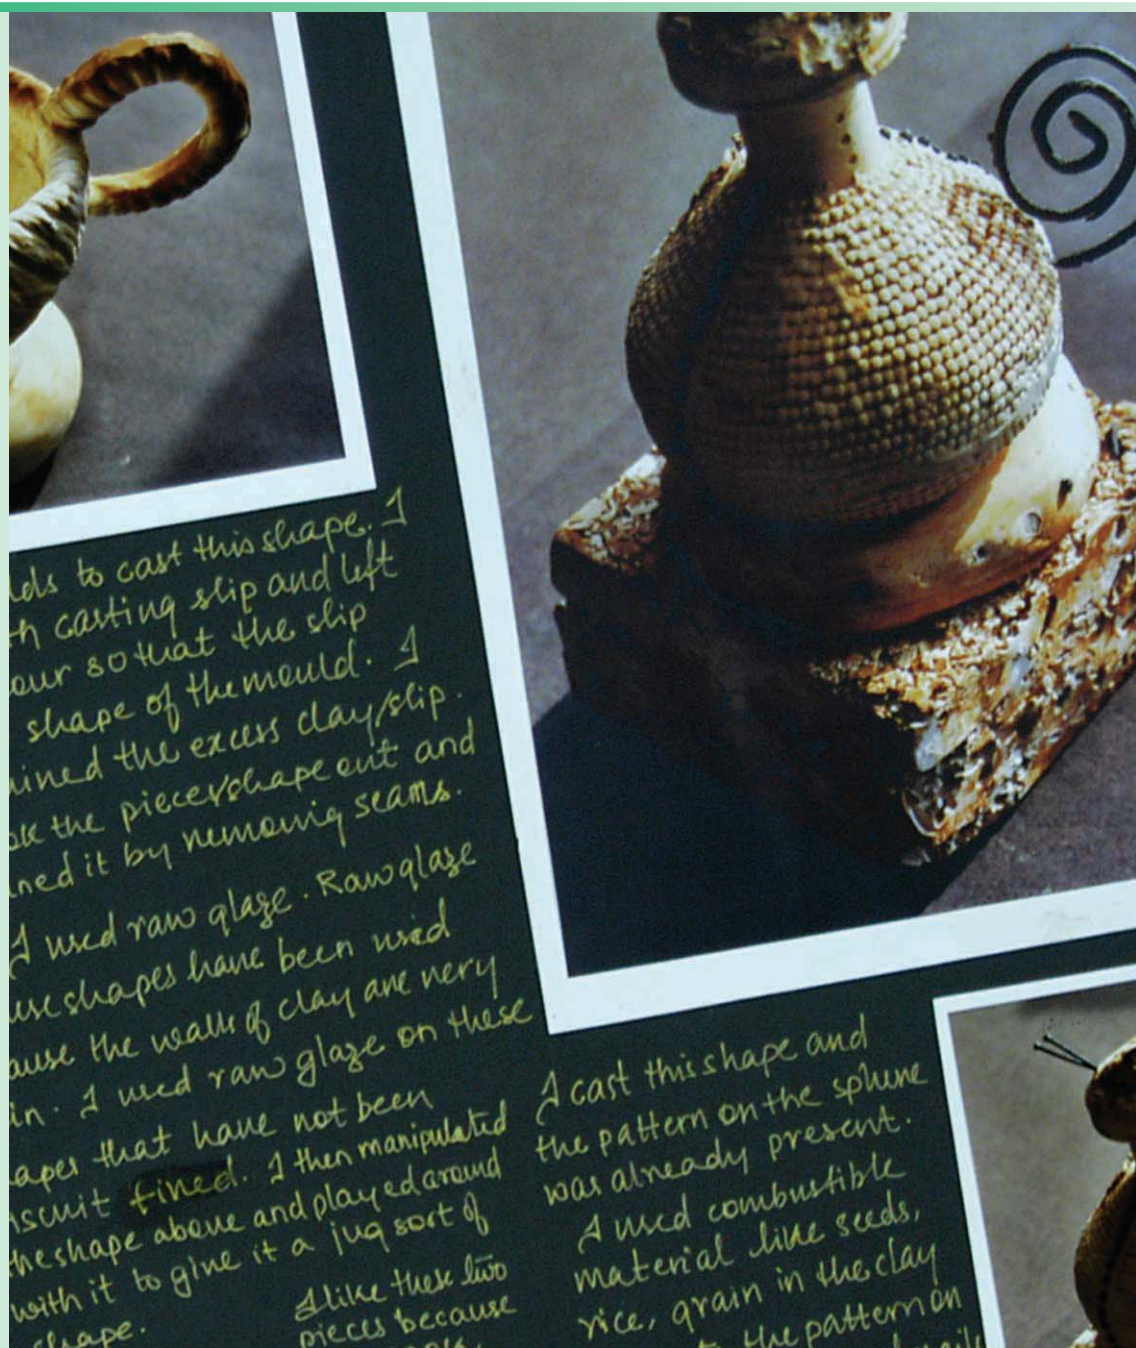 lds to cast this shape. I
th casting slip and left
our so that the slip
shape of the mould. I
ined the excess clay/slip.
ok the piece/shape out and
ned it by removing seams.
I used raw glaze. Raw glaze
ese shapes have been used
ause the walls of clay are very
in. I used raw glaze on these
apes that have not been
iscuit fired. I then manipulated
the shape above and played around
with it to give it a jug sort of
shape.
I like these two
pieces because
I cast this shape and
the pattern on the sphere
was already present.
I used combustible
material like seeds,
rice, grain in the clay
the pattern on